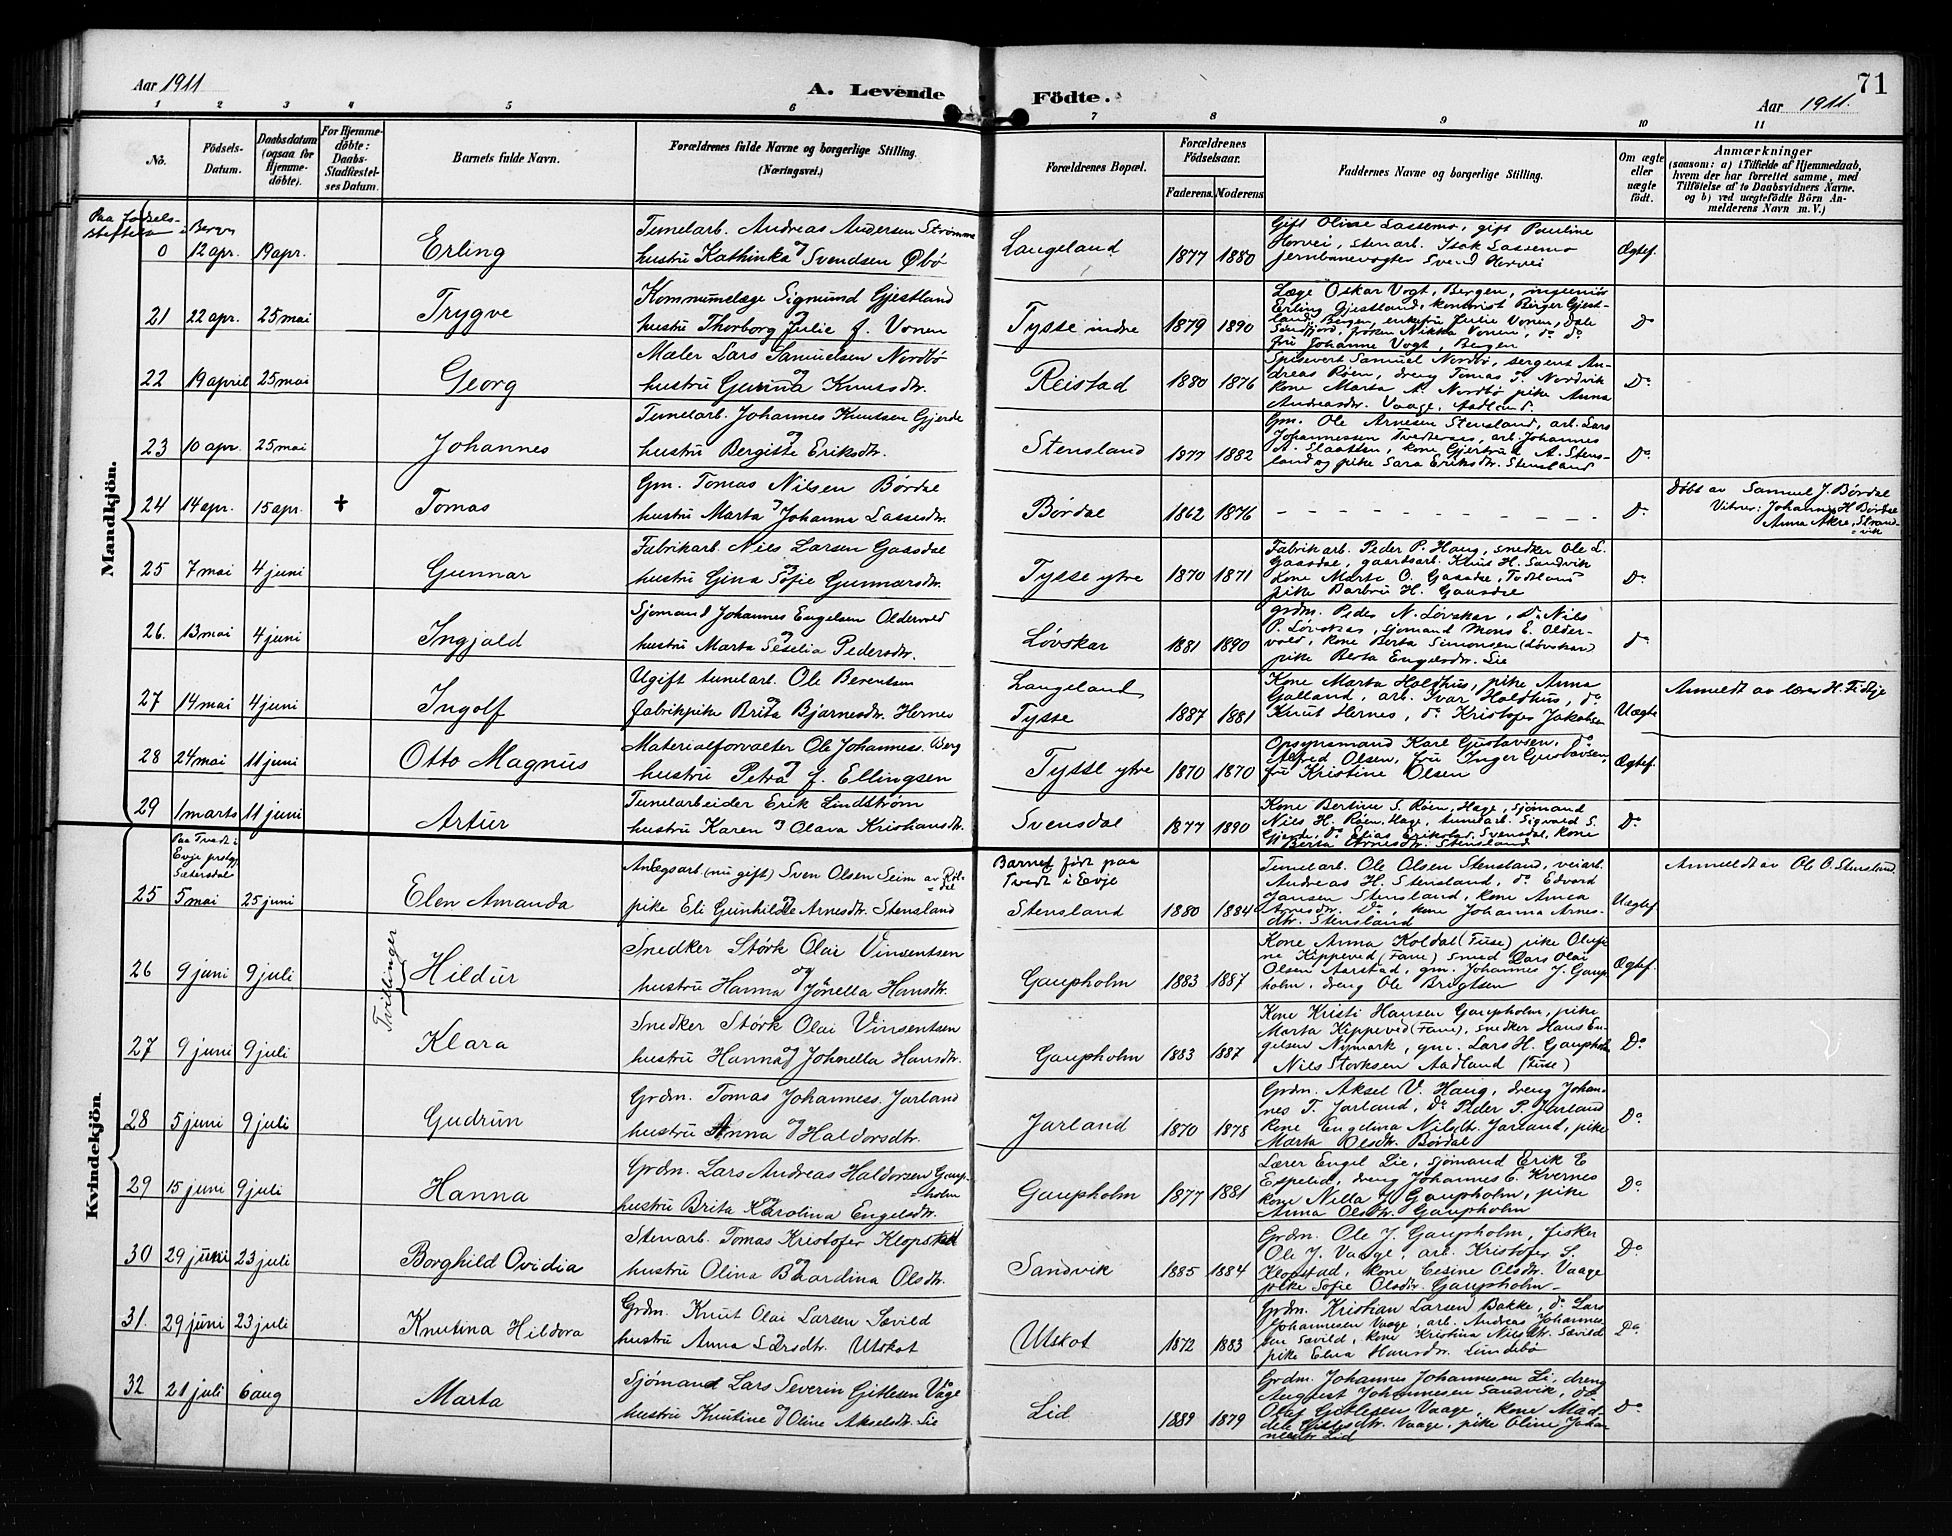 Aar 1911
A. Levende Födte.
71
Aar 1911.
1 2 3 4 5 6 7 8 9 10 11
No.
Födsels-Datum.
Daabsdatum (ogsaa for Hjemme-döbte).
For Hjemme-döbte: Daabs-Stadfæstel-ses Datum.
Barnets fulde Navn.
Forældrenes fulde Navne og borgerlige Stilling.
(Næringsvei.)
Forældrenes Bopæl.
Forældrenes Födselsaar.
Faderens. Moderens.
Faddernes Navne og borgerlige Stilling.
Om ægte eller uægte födt.
Anmærkninger
(saasom: a) i Tilfælde af Hjemmedaab,
hvem der har forrettet samme, med
Tilföielse af to Daabsvidners Navne.
og b) ved uægtefödte Börn An-
melderens Navn m. V.)
Mandkjön.
Paa fødsels-
stiftelsen i Bergen
0 12 apr. 19 apr. Erling
Tunelarb. Andreas Andersen Strømme
og
hustru Kathinka Svendsen Øbø
Langeland. 1877 1880
Gift Oline Lassemo, gift Pauline
Horvei, stenarb. Isak Lassemo
jernbanevogter Svend Horvei
Ægtef.
21 22 apr. 25 mai Trygve
Kommunelæge Sigmund Gjestland
og
hustru Thorborg Julie f. Vonen
Tysse indre 1879 1890
Læge Oskar Vogt, Bergen, ingeniør
Erling Gjestland, kontorist Birger Gjest-
land, Bergen, enkefru Julie Vonen, Dale
Søndfjord, frøken Nikka Vonen, do do
fru Johanne Vogt, Bergen
Do
22 19 april 25 mai Georg
Maler Lars Samuelsen Nordbø
og
hustru Gurina Knutsdtr.
Reistad 1880 1876
Spisevert Samuel Nordbø, sergent An-
dreas Røen, dreng Tomas T. Nordvik
kone Marta A. Nordbø pike Anna
Andreasdtr. Vaage, Aadland.
Do
23 10 apr. 25 mai Johannes
Tunelarb. Johannes Knutsen Gjerde
og
hustru Bergitte Eriksdtr.
Stensland 1877 1882
Gm. Ole Arnesen Stensland, arb. Lars
Johannessen Tvedternes, arb. Johannes
A. Slaatten, kone Gjertrud A. Stens-
land og pike Sara Eriksdtr. Stensland
Do
24 14 apr. 15 apr. + Tomas
Gm. Tomas Nilsen Børdal
og
hustru Marta Johanna Lassesdtr.
Børdal 1862 1876
- - - - - - - - - - - -
Do
Døbt av Samuel J. Børdal
Vitner: Johannes H Børdal
Anna Akre, Strand-
vik
25 7 mai 4 juni Gunnar
Fabrikarb. Nils Larsen Gaasdal
og
hustru Gina Sofie Gunnarsdtr.
Tysse ytre 1870 1871
Fabrikarb. Peder P. Haug, snedker Ole L.
Gaasdal, gaardsarb. Knut H. Sandvik
kone Marta O. Gaasdal, Todland
pike Barbru H. Gaasdal
Do
26. 13 mai 4 juni Ingjald
Sjømand Johannes Engelsen Oldervold
og
hustru Marta Seselia Pedersdtr.
Løvskar 1881 1890
grdm. Peder N. Løvskar, do Nils
P. Løvskar, sjømand Mons E. Older-
vold, kone Berta Simonsen (Løvskar)
pike Berta Engelsdtr. Lie
Do
27 14 mai 4 juni Ingolf
Ugift tunelarb. Ole Berentsen
og
fabrikpike Brita Bjarnesdtr. Hernes
Langeland
Tysse 1887 1881
Kone Marta Holdhus, pike Anna
Galland, arb. Ivar Holdhus, do
Knut Hernes, do Kristofer Jakobsen
Uægte
Anmeldt av lærer H. Fidtje
28 24 mai 11 juni Otto Magnus
Materialforvalter Ole Johanness. Berg
og
hustru Petra f. Ellingsen
Tysse ytre 1870 1870
Opsynsmand Karl Gustavsen, do
Alfred Olsen, fru Inger Gustavsen,
fru Kristine Olsen
Ægtef.
29 1 marts 11 juni Artur
Tunelarbeider Erik Lindstrøm
hustru Karen og Olava Kristiansdtr.
Svensdal 1877 1890
Kone Bertine S. Røen, Hage, sjømand
Nils H. Røen, Hage, tunelarb. Sigvald S.
Gjerde, do Elias Erikstad, Svensdal, kone
Berta Arnesdtr. Stensland
Do
Kvindekjön.
Paa Tvedt i
Evje prstgj.
Sætersdal
25 5 mai 25 juni Elen Amanda
Anlægsarb. (nu gift) Sven Olsen Seim av Røl-
dal
pike Eli Gunhilde Arnesdtr. Stensland
Barnet født paa
Tvedt i Evje
Stensland 1880 1884
Tunelarb. Ole Olsen Stensland, veiarb.
Andreas H. Stensland, do Edvard
Jansen Stensland, kone Anna
Arnesdtr. Do, kone Johanna Arnes-
dtr. Stensland
Uægtef.
Anmeldt av Ole O. Stensland.
Tvillinger
26 9 juni 9 juli Hildur
Snedker Størk Olai Vinsentsen
og
hustru Hanna Jonella Hansdtr.
Gaupholm 1883 1887
Kone Anna Koldal (Fuse) pike Olufi-
ne Kippeved (Fane) smed Lars Olai
Olsen Aarstad, gm. Johannes J. Gaup-
holm, dreng Ole Brigtsen
Ægtef.
27 9 juni 9 juli Klara
Snedker Størk Olai Vinsentsen
og
hustru Hanna Johnella Hansdtr.
Gaupholm 1883 1887
Kone Kristi Hansen Gaupholm, pike
Marta Kippeved (Fane), snedker Hans En-
gelsen Nymark, gm. Lars H. Gaupholm
Nils Storksen Aadland (Fuse)
Do
28 5 juni 9 juli Gudrun
Grdm. Tomas Johanness. Jarland
hustru Anna og Haldorsdtr.
Jarland 1870 1878
Grdm. Aksel V. Haug, dreng Johan-
nes T. Jarland, do Peder P. Jarland
kone Engelina Nilsdtr. Jarland, pike
Marta Olsdtr. Børdal
Do
29 15 juni 9 juli Hanna
Grdm. Lars Andreas Haldorsen Gaup-
holm
hustru Brita Karolina Engelsdtr.
Gaupholm 1877 1881
Lærer Engel Lie, sjømand Erik E
Espelid, dreng Johannes E. Kvernes
kone Nilla J. Gaupholm, pike
Anna Olsdtr. Gaupholm
Do
30 29 juni 23 juli Borghild Ovidia
Stenarb. Tomas Kristofer Klopstad
hustru Olina Bardina Olsdtr.
Sandvik 1885 1884
Grdm. Ole J. Gaupholm, fisker
Ole J. Vaage, arb. Kristofer S.
Klopstad, kone Eesine Olsdtr. Vaage
pike Sofie Olsdtr. Gaupholm
Do
31. 29 juni 23 juli Knutina Hildora
Grdm. Knut Olai Larsen Sævild
hustru Anna Larsdtr. Utskot
Utskot 1872 1883
Grdm. Kristian Larsen Bakke, do Lars
Johannesen Vaage, arb. Andreas Johannes-
sen Sævild, kone Kristina Nilsdtr. Sævild
pike Elna Hansdtr. Lindebø
Do
32 21 juli 6 aug Marta
Sjømand Lars Severin Gitlesen Våge
hustru Knutine og Oline Akselsdtr. Lie
Lid 1889 1879
Grdm. Johannes Johannesen Li, dreng
August Johannesen Sandvik, do
Olaf Gitlesen Vaage, kone Mag-
dele Gitlesdtr. Vaage, pike Oline Johan-
nesdtr Lid
Do